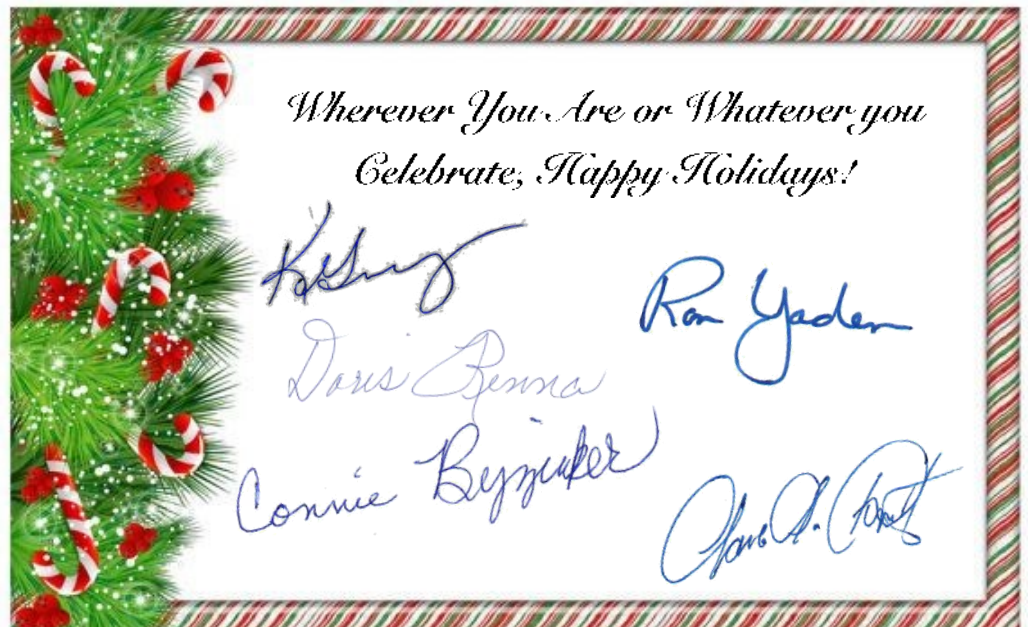 Wherever You Are or Whatever you
Celebrate, Happy Holidays!
Ron Yaden
Doris Renna
Connie